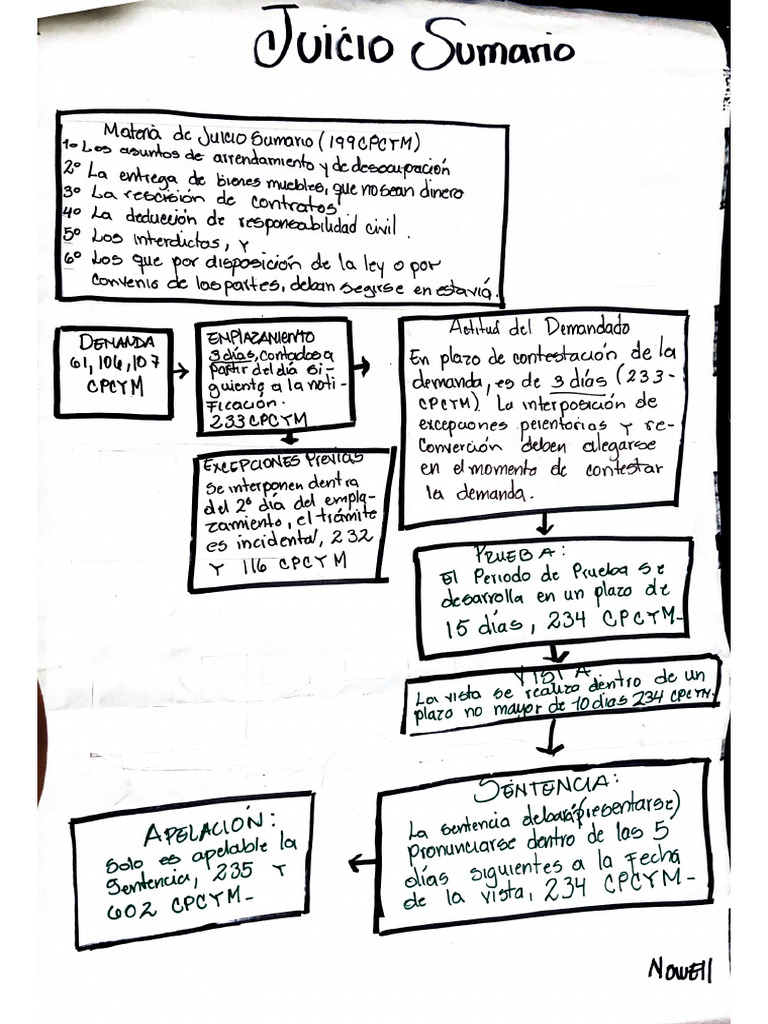 Juicio Sumario
Materia de Juicio Sumario (199 CPCYM)
1º Los asuntos de arrendamiento y de desocupación
2º La entrega de bienes muebles, que no sean dinero
3º La rescisión de contratos
4º La deducción de responsabilidad civil.
5º Los interdictos, y
6º Los que por disposición de la ley o por
convenio de las partes, deban segirse en esta viá.
DEMANDA
61, 106, 107
CPCYM
EMPLAZAMIENTO
3 días, contados a
partir del día si-
guiente a la noti-
ficación.
233 CPCYM
EXCEPCIONES Previas
Se interponen dentro
del 2º día del empla-
zamiento, el trámite
es incidental, 232
Y 116 CPCYM
Actitud del Demandado
En plazo de contestación de la
demanda, es de 3 días (233-
CPCYM). La interposición de
excepciones perentorias y re-
convención deben alegarse
en el momento de contestar
la demanda.
PRUEBA:
El Periodo de Prueba se
desarrolla en un plazo de
15 días, 234 CPCYM-
VISTA
La vista se realiza dentro de un
plazo no mayor de 10 dias 234 CPCYM-
SENTENCIA:
La sentencia deberá (presentarse)
pronunciarse dentro de los 5
días siguientes a la fecha
de la vista, 234 CPCYM-
APELACIÓN:
Solo es apelable la
Sentencia, 235 y
602 CPCYM-
Nowell